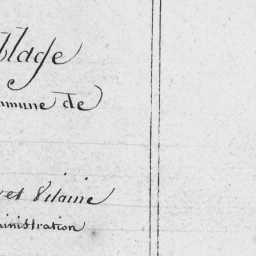 blage
mmune de
et Vilaine
ministration